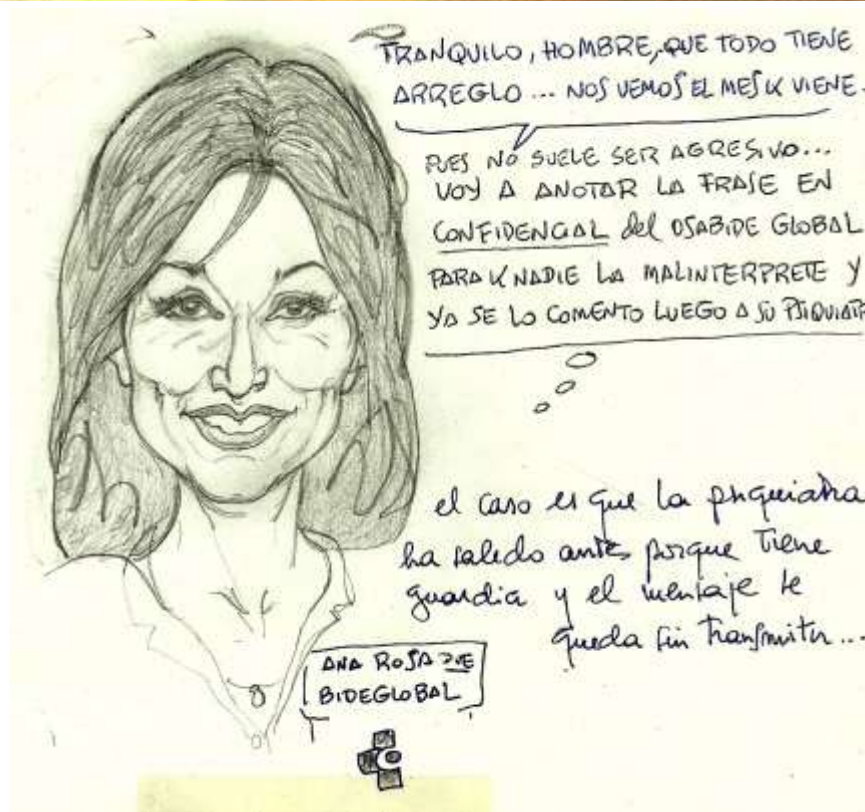 TRANQUILO, HOMBRE, QUE TODO TIENE
ARREGLO... NOS VEMOS EL MES K VIENE.
PUES NO SUELE SER AGRESIVO...
VOY A ANOTAR LA FRASE EN
CONFIDENCIAL del OSABIDE GLOBAL
PARA K NADIE LA MALINTERPRETE Y
YA SE LO COMENTO LUEGO A SU PSIQUIATR
el caso es que la psiquiatra
ha salido antes porque tiene
guardia y el mensaje se
queda sin transmitir...
ANA ROSA DUE
BIDEGLOBAL